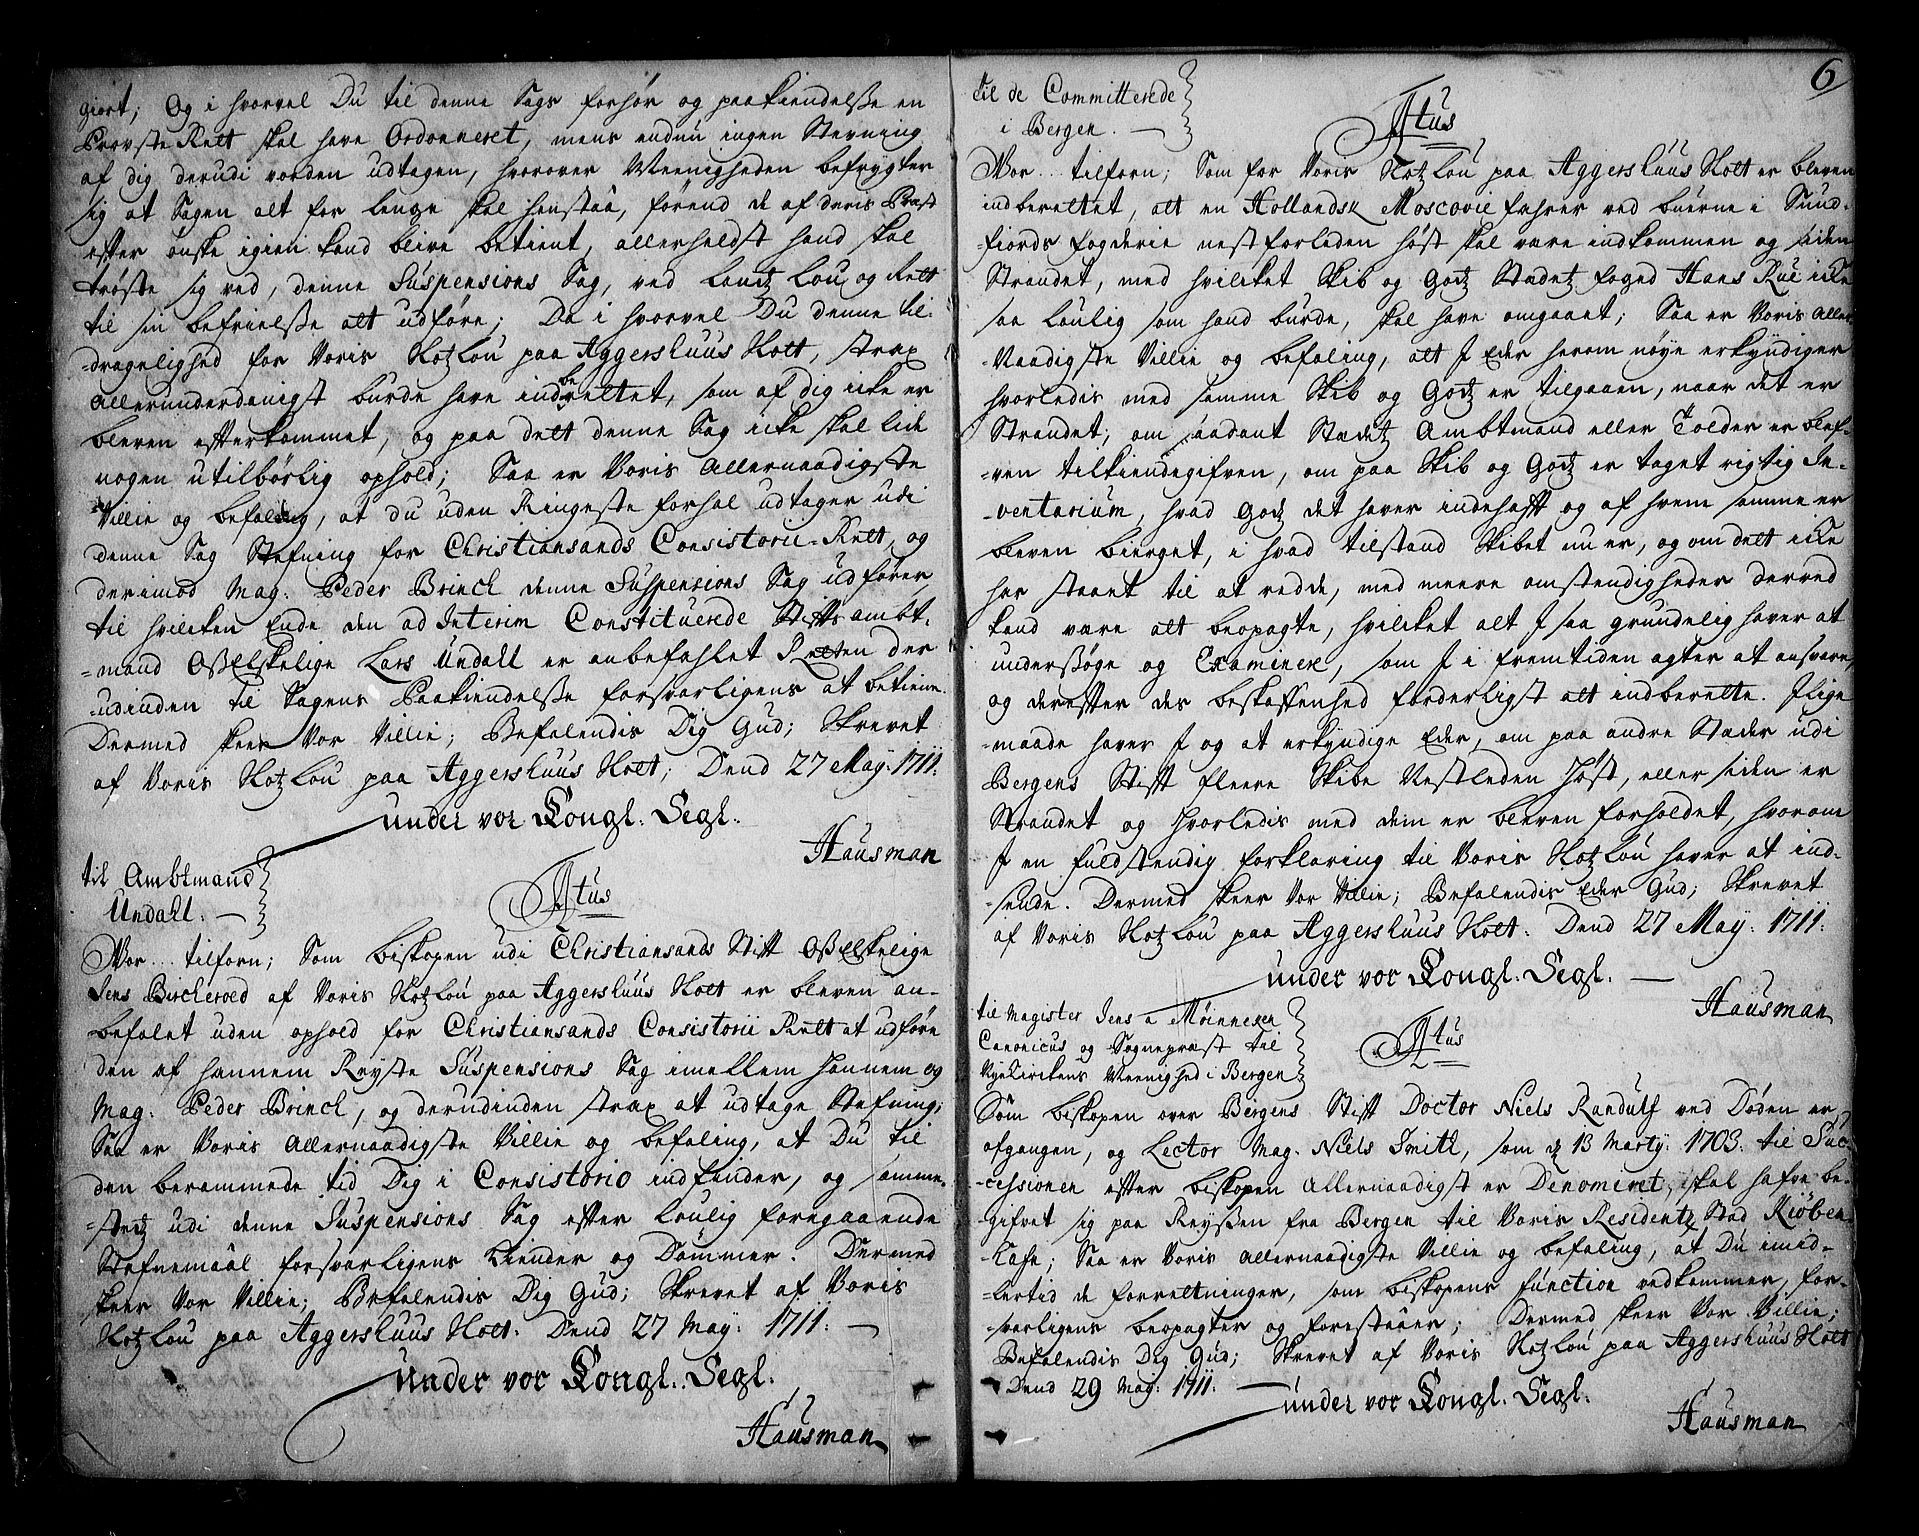 giort; Og i hvorvel Du til denne Sags forhør og paakiendelße en
Provste Rett skal have Ordonneret, mens endnu ingen Stevning
af dig derudi vorden udtagen, hvorover Meenigheden befrygter
sig at Sagen alt for lenge skal henstaa, førend de af deris Præst
efter ønske igien kand blive betient, allerhelst hand skal
trøste sig ved, denne Suspensions Sag, ved Landtz Lou og Rett
til sin befrielße att udføre; Da i hvorvel Du denne til-
-dragelighed for Voris Slotzlou paa Aggershuus Slott, strax
allerunderdanigst burde have indberettet, som af dig icke er
bleven efterkommet, og paa dett denne Sag icke skal lide
nogen utilbørlig ophold; Saa er Voris Allernaadigste
Villie og befaling, at du uden Ringeste forhal udtager udi
denne Sag Stefning for Christiansands Consistorii-Rett, og
derimod Mag. Peder Brinch denne Suspensions Sag udfører,
til hvilken Ende den ad Interim Constituerede Stiftsambt-
-mand Oßelskelige Lars Undall er anbefahlet Retten der
-udinden til Sagens Paakiendelße forsvarligens at betiene.
Dermed skeer Vor Villie; Befalendis Dig Gud; Skrevet
af Voris Slotzlou paa Aggershuus Slott; Dend 27 May: 1711:
under vor Kongl. Segl.
Hausman
til Ambtmand
Undall.
Titus
Vor... tilforn; Som biskopen udi Christiansands Stift Oßelskelige
Jens Bircherod af Voris Slotzlou paa Aggershuus Slott er bleven an-
befalet uden ophold for Christiansands Consistorii Rett at udføre
den af hannem Reyste Suspensions Sag imellem hannem og
Mag. Peder Brinch, og derudinden strax at udtage Stefning;
Saa er Voris allernaadigste Villie og befaling, at Du til
den berammede tid Dig i Consistorio indfinder, og samme-
-stetz udi denne Suspensions Sag efter Loulig foregaaende
Stefnemaal forsvarligens kiender og Dømmer. Dermed
skeer Vor Villie; Befalendis Dig Gud; Skrevet af Voris
Slotzlou paa Aggershuus Slott. Dend 27 May: 1711:
Under vor Kongl. Segl.
Hausman
6
til de Committerede
i Bergen.
Titus
Vor... tilforn; Som for Voris Slotzlou paa Aggershuus Slott er bleven
indberettet, att en Hollandsk Moscovie fahrer ved buerne i Sund-
-fiords fogderie nestforleden høst skal være indkommen og siden
Strandet, med hvilcket Skib og Gotz Stædetz foged Hans Rue icke
saa Loulig som hand burde, skal have omgaaet; Saa er Voris aller-
-Naadigste Villie og befaling, att I Eder herom nøye erkyndiger
hvorledis med samme Skib og Gotz er tilgaaen, naar det er
Strandet, om saadant Stædetz Ambtmand eller Tolder er blef-
-ven tilkiendegifven, om paa Skib og Gotz er taget rigtig In-
-ventarium, hvad Gotz det haver indehaft og af hvem samme er
bleven bierget, i hvad tilstand Skibet nu er, og om dett icke
har staaet til at redde, med meere omstendigheder derved
kand være att beopagte, hvilcket alt I saa grundelig haver at
undersøge og Examinere, som I i fremtiden agter at ansvare,
og derefter des beskaffenhed forderligst att indberette. I lige
-maade haver I og at erkyndige Eder, om paa andre Stæder udi
Bergens Stift fleere Skibe Nestleden Høst, eller siden er
Strandet og hvorledis med dem er bleven forholdet, hvorom
I en fuldstendig forklaring til Voris Slotzlou haver at ind-
-sende. Dermed skeer Vor Villie; Befalendis Eder Gud; Skrevet
af Voris Slotzlou paa Aggershuus Slott. Dend 27 May: 1711:
under vor Kongl. Segl.
Hausman
til Magister Jens a Møinnexen
Canonicus og Sognepræst til
Nyekirckens Meenighed i Bergen
Titus
Som biskopen over Bergens Stift Doctor Niels Randulf ved Døden er
afgangen, og Lector Mag. Niels Smith, som d 13 Marty: 1703. til Suc-
-cessionen efter biskopen Allernaadigst er Denomeret, skal hafve be-
-gifvet sig paa Reyßen fra Bergen til Voris Residentz Stad Kiøben-
-hafn; Saa er Voris allernaadigste Villie og befaling, at Du imid-
-lertid de forretninger, som biskopens function vedkommer, for-
-svarligens beopagter og forestaaer; Dermed skeer Vor Villie;
Befalendis Dig Gud; Skrevet af Voris Slotzlou paa Aggershuus Slott
Dend 29 May: 1711:
under vor Kongl. Segl.
Hausman